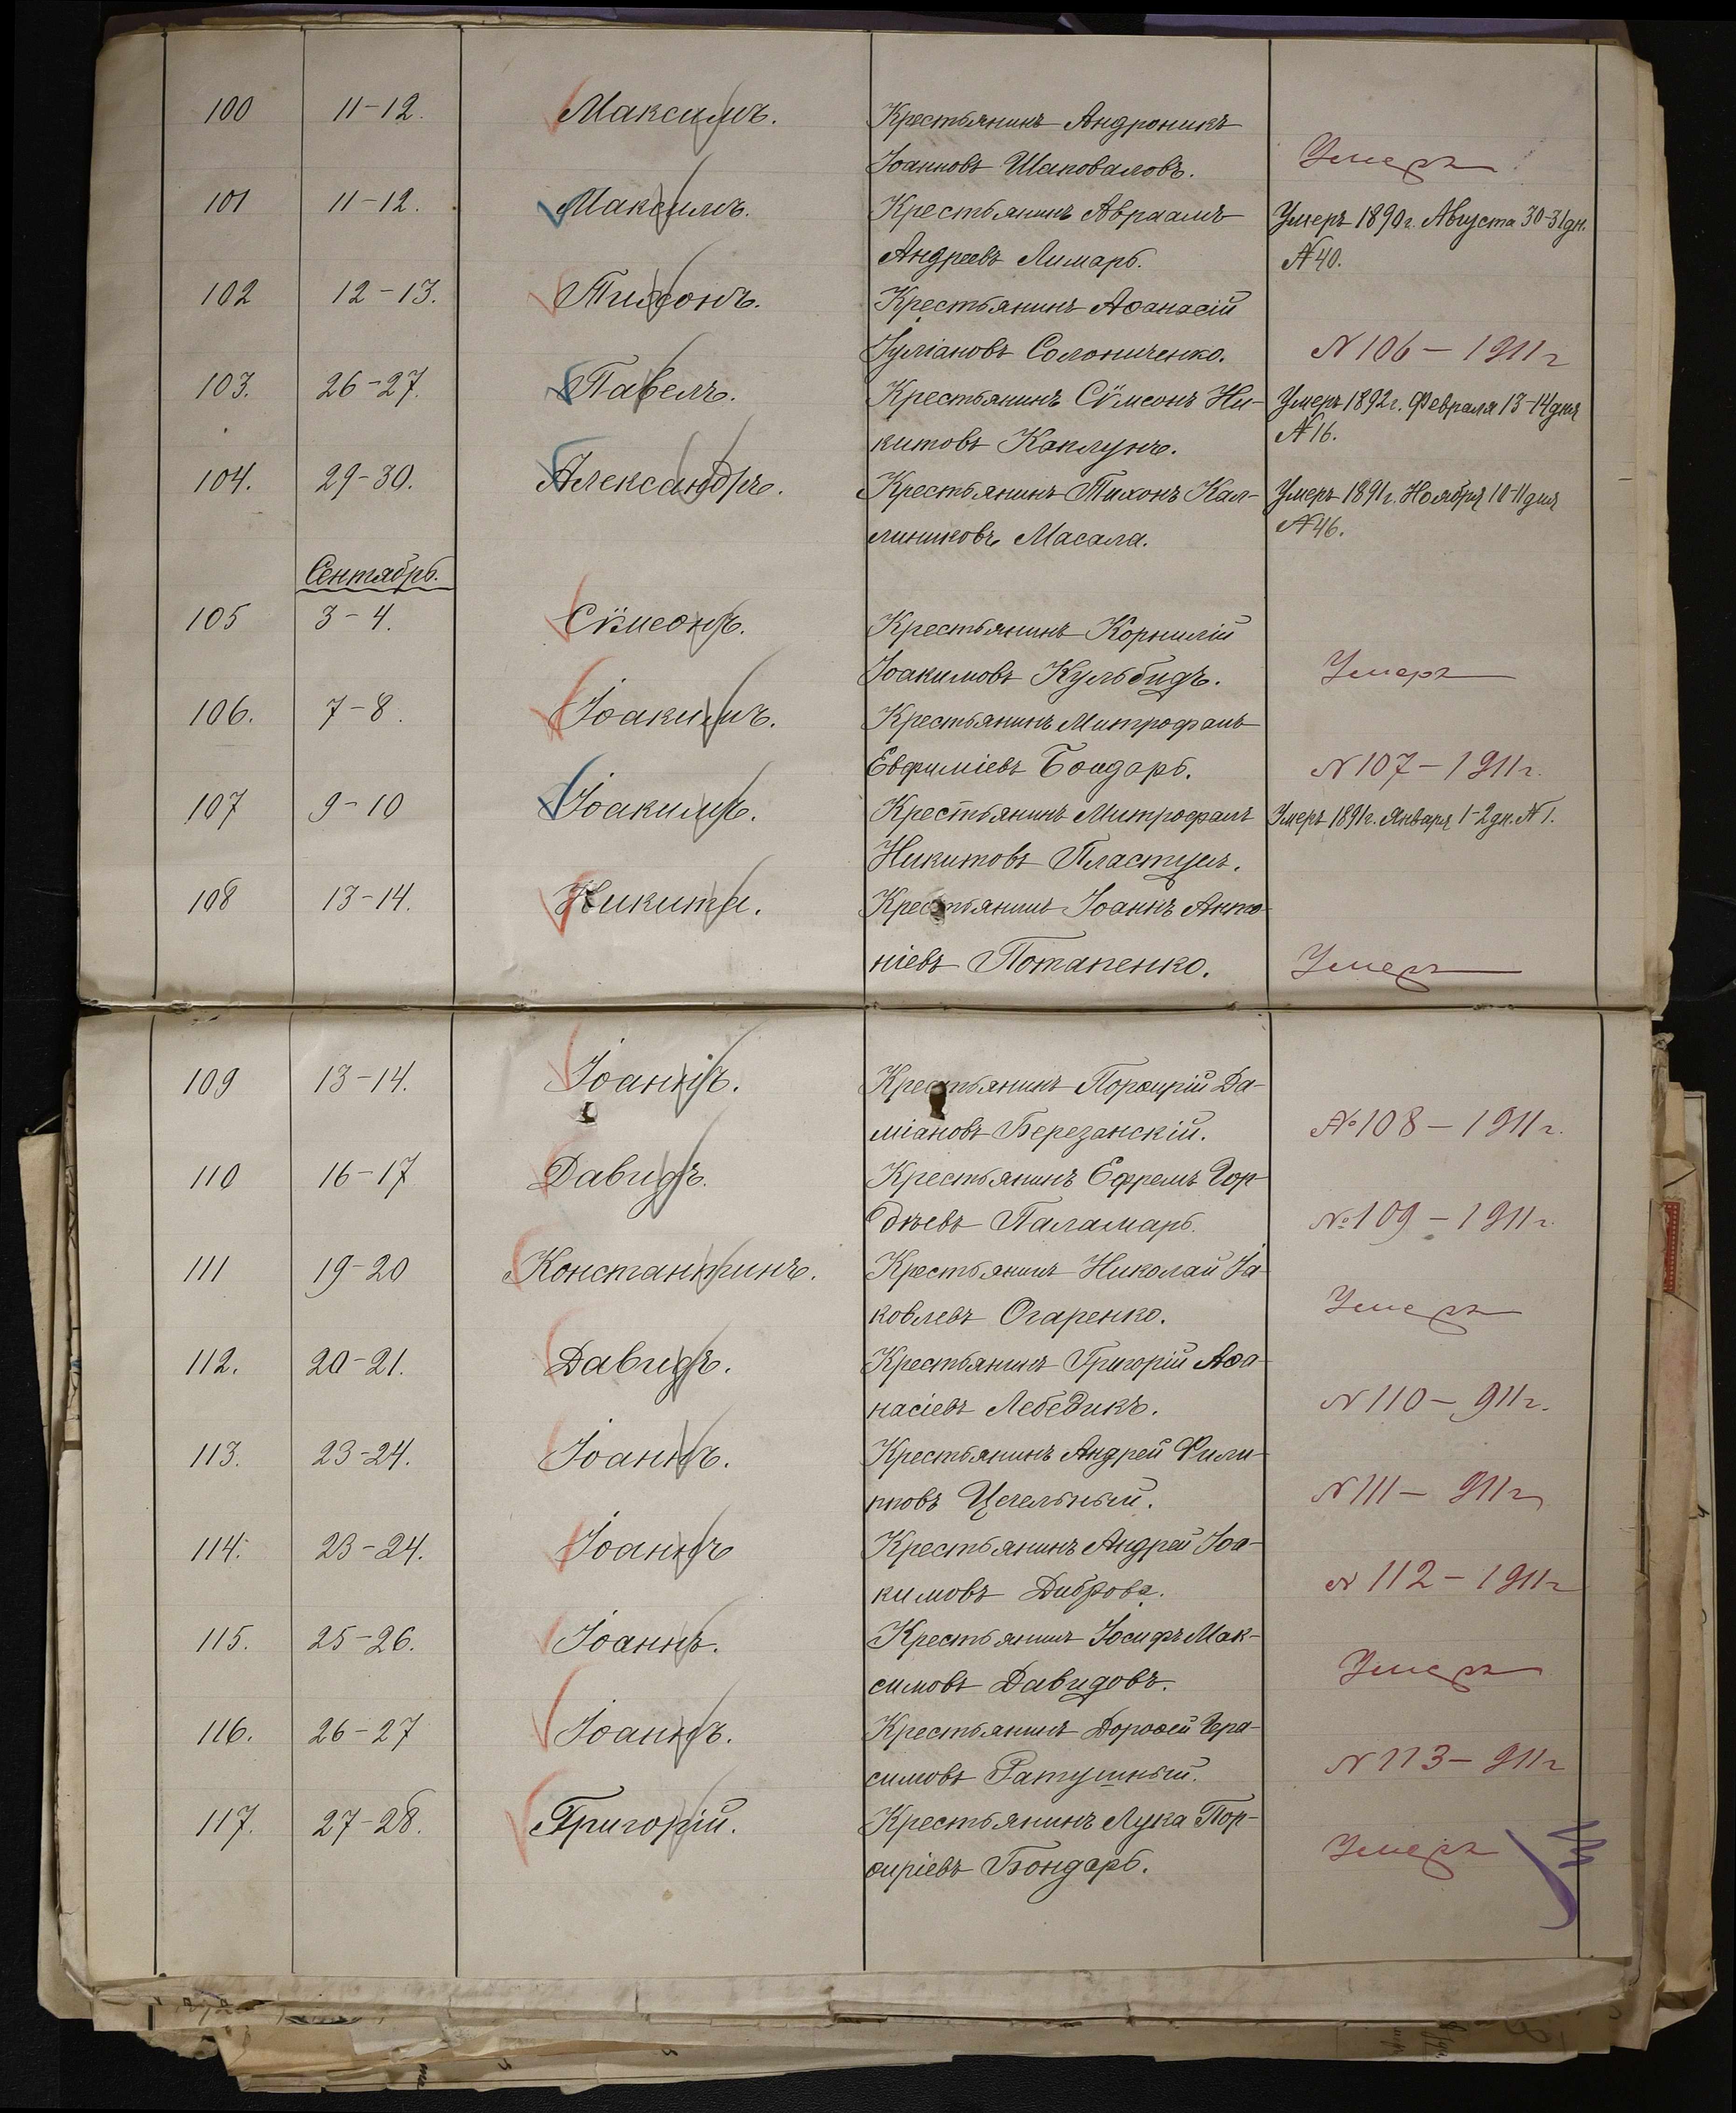 100 11-12. Максимъ. Крестьянинъ Андроникъ
Іоанновъ Шаповаловъ. Умеръ
101 11-12. Максимъ. Крестьянинъ Авраамъ Умеръ 1890г. Августа 30-31дн.
Андреевъ Лимарь. №40.
102 12-13. Тихонъ. Крестьянинъ Аѳанасій
Іуліановъ Солониченко. N 106 - 1911г
103. 26-27. Павелъ. Крестьянинъ Сѷмеонъ Ни- Умеръ 1892г. Февраля 13-14дня
китовъ Каплунъ. №16.
104. 29-30. Александръ. Крестьянинъ Тихонъ Кал- Умеръ 1891г. Ноября 10-11дня
линиковъ Масала. №46.
Сентябрь.
105 3-4. Сѷмеонъ. Крестьянинъ Корнилій
Іоакимовъ Кульбидъ. Умеръ
106. 7-8. Іоакимъ. Крестьянинъ Митрофанъ
Евфиміевъ Бондарь. N 107 - 1911г.
107 9-10 Іоакимъ. Крестьянинъ Митрофанъ Умеръ 1891г. Января 1-2дн. №1.
Никитовъ Пластунъ.
108 13-14. Никита. Крестьянинъ Іоаннъ Анто-
ніевъ Потапенко. Умеръ
109 13-14. Іоаннъ. Крестьянинъ Порѳирій Да-
міановъ Березанскій. №108 - 1911г.
110 16-17 Давидъ. Крестьянинъ Ефремъ Гор-
дѣевъ Паламарь. №109 - 1911г.
111 19-20 Константинъ. Крестьянинъ Николай Іа-
ковлевъ Огаренко. Умеръ
112. 20-21. Давидъ. Крестьянинъ Григорій Аѳа-
насіевъ Лебедикъ. N 110 - 911г.
113. 23-24. Іоаннъ. Крестьянинъ Андрей Фили-
пповъ Цегельный. N 111 - 911г
114. 23-24. Іоаннъ Крестьянинъ Андрей Іоа-
кимовъ Диброва. N 112 - 1911г
115. 25-26. Іоаннъ. Крестьянинъ Іосифъ Мак-
симовъ Давидовъ. Умеръ
116. 26-27 Іоаннъ. Крестьянинъ Дороѳей Гера-
симовъ Ратушный. N 113 - 911г
117. 27-28. Григорій. Крестьянинъ Лука Пор-
ѳиріевъ Бондарь. Умеръ